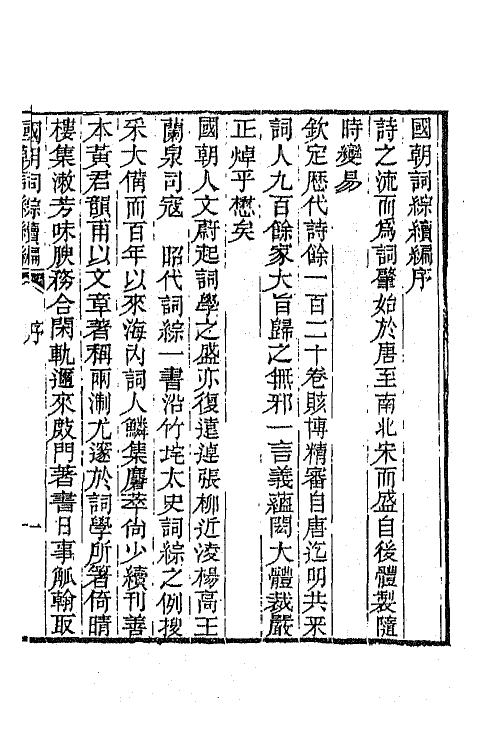 國朝詞綜續編序
詩之流而爲詞肈始於唐至南北宋而盛自後體製隨
時變易
欽定歴代詩餘一百二十卷賅博精審自唐迄明共采
詞人九百餘家大旨歸之無邪一言義蘊閎大體裁嚴
正焯乎懋矣
國朝人文蔚起詞學之盛亦復遠違張柳近淩楊高王
蘭泉司宼 昭代詞綜一書沿竹垞太史詞綜之例搜
采大備而百年以來海內詞人鱗集麕萃尙少續刊善
本黃君韻甫以文章著稱兩淛尤邃於詞學所著倚晴
樓集漱芳味腴務合閑軌邇來啟門著書日事觚翰取
國朝詞綜續編 序 一